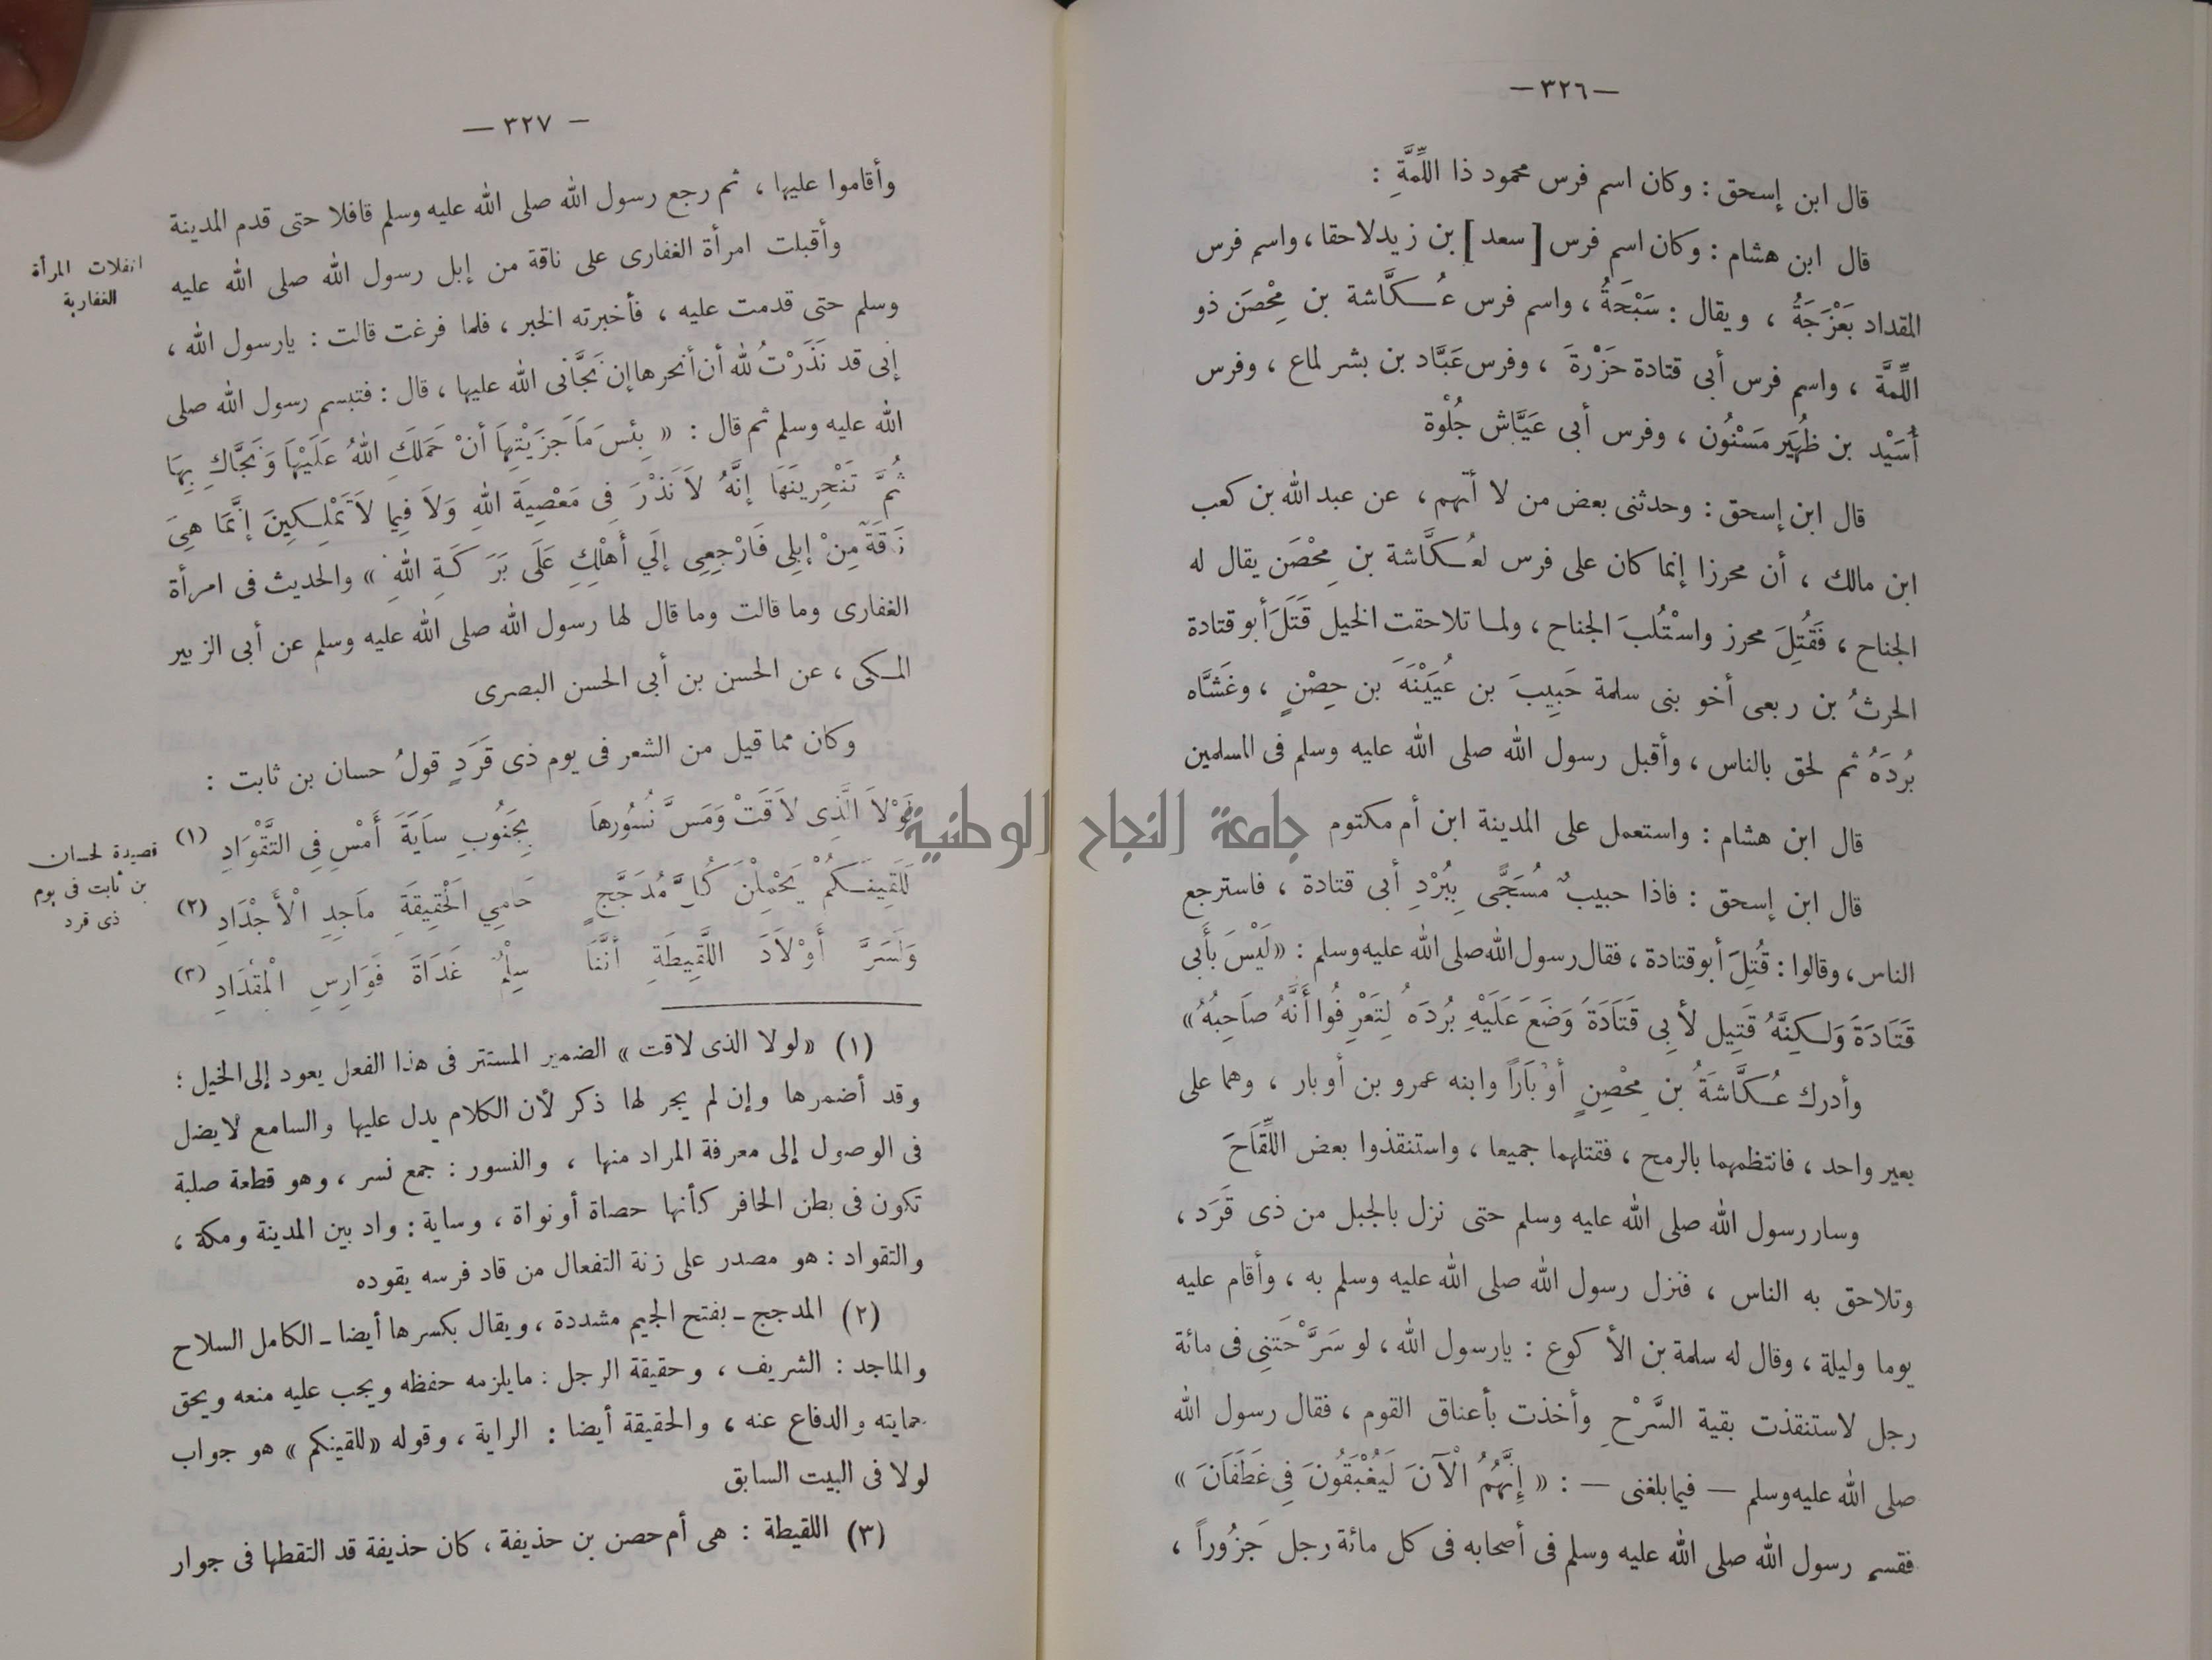 — ٣٢٦ —
قال ابن إسحق : وكان اسم فرس محمود ذا اللِّمَّةِ :
قال ابن هشام : وكان اسم فرس [ سعد ] بن زيد لاحقا ، واسم فرس
المقداد بَعْزَجَةُ ، ويقال : سَبْحَةُ ، واسم فرس عُكَّاشة بن مِحْصَن ذو
اللِّمَّة ، واسم فرس أبى قتادة حَزْرةَ ، وفرس عَبَّاد بن بشر لماع ، وفرس
أُسَيْد بن ظُهَير مَسْنُون ، وفرس أبى عَيَّاش جُلْوة
قال ابن إسحق : وحدثنى بعض من لا أتهم ، عن عبد الله بن كعب
ابن مالك ، أن محرزا إنما كان على فرس لعُكَّاشة بن مِحْصَن يقال له
الجناح ، فَقُتِلَ محرز واسْتُلبَ الجناح ، ولما تلاحقت الخيل قَتَلَ أبو قتادة
الحرثُ بن ربعى أخو بنى سلمة حَبِيبَ بن عُيَيْنَةَ بن حِصْنٍ ، وغَشَّاه
بُردَهُ ثم لحق بالناس ، وأقبل رسول الله صلى الله عليه وسلم فى المسلمين
قال ابن هشام : واستعمل على المدينة ابن أم مكتوم
قال ابن إسحق : فاذا حبيبٌ مُسَجًّى بِبُرْدِ أبى قتادة ، فاسترجع
الناس ، وقالوا : قُتِلَ أبو قتادة ، فقال رسول الله صلى الله عليه وسلم : « لَيْسَ بِأَبى
قَتَادَةَ وَلكِنَّهُ قَتِيل لأبِى قَتَادَةَ وَضَعَ عَلَيْهِ بُردَهُ لِتَعْرِفُوا أَنَّهُ صَاحِبُهُ »
وأدرك عُكَّاشَةُ بن مِحْصِنٍ أوْبَاراً وابنه عمرو بن أوبار ، وهما على
بعير واحد ، فانتظمهما بالرمح ، فقتلهما جميعا ، واستنقذوا بعض اللِّقَاحَ
وسار رسول الله صلى الله عليه وسلم حتى نزل بالجبل من ذى قَرَد ،
وتلاحق به الناس ، فنزل رسول الله صلى الله عليه وسلم به ، وأقام عليه
يوما وليلة ، وقال له سلمة بن الأكوع : يارسول الله ، لو سَرَّحْتَنِى فى مائة
رجل لاستنقذت بقية السَّرْحِ وأخذت بأعناق القوم ، فقال رسول الله
صلى الله عليه وسلم — فيما بلغنى — : « إِنَّهُمُ الْآنَ لَيُغْبَقُونَ فِى غَطَفَانَ »
فقسم رسول الله صلى الله عليه وسلم فى أصحابه فى كل مائة رجل جَزُوراً ،
— ٣٢٧ —
وأقاموا عليها ، ثم رجع رسول الله صلى الله عليه وسلم قافلا حتى قدم المدينة
وأقبلت امرأة الغفارى على ناقة من إبل رسول الله صلى الله عليه
انفلات المرأة
الغفارية
وسلم حتى قدمت عليه ، فأخبرته الخبر ، فلما فرغت قالت : يارسول الله ،
إنى قد نَذَرْتُ لله أن أنحرها إن نَجَّانى الله عليها ، قال : فتبسم رسول الله صلى
الله عليه وسلم ثم قال : « بِئْسَ مَا جَزَيْتِهَا أنْ حَمَلَكِ اللهُ عَلَيْهَا وَنَجَّاكِ بِهَا
ثُمَّ تَنْحِرِينَهَا إنَّهُ لاَ نَذْرَ فِى مَعْصِيَةَ اللهِ وَلاَ فِيما لاَ تَمْلِكِينَ إنَّمَا هِىَ
نَاقَةٌ مِنْ إبِلِى فَارْجِعِى إلَي أَهْلِكِ عَلَى بَرَكَةِ اللهِ » والحديث فى امرأة
الغفارى وما قالت وما قال لها رسول الله صلى الله عليه وسلم عن أبى الزبير
المكى ، عن الحسن بن أبى الحسن البصرى
وكان مما قيل من الشعر فى يوم ذى قَرَدٍ قولُ حسان بن ثابت :
لَوْلاَ الَّذِى لاَقَتْ وَمَسَّ نُسُورهَا بِجَنُوبِ سَايَةَ أَمْسِ فِي التَّقْوَادِ (١)
قصيدة لحسان
بن ثابت فى يوم
ذى قرد
لَلَقِينَكُمْ يَحْمِلْنَ كُلَّ مُدَجَّجٍ حَامِي الْحَقِيقَةِ مَاجِدِ الْأَجْدَادِ (٢)
وَلَسَرَّ أَوْلاَدَ اللَّقِيطَةِ أنَّنَا سِلْمٌ غَدَاةَ فَوَارِسِ الْمِقْدَادِ (٣)
(١) « لولا الذى لاقت » الضمير المستتر فى هذا الفعل يعود إلى الخيل ؛
وقد أضمرها وإن لم يجر لها ذكر لأن الكلام يدل عليها والسامع لايضل
فى الوصول إلى معرفة المراد منها ، والنسور : جمع نسر ، وهو قطعة صلبة
تكون فى بطن الحافر كأنها حصاة أو نواة ، وساية : واد بين المدينة ومكة ،
والتقواد : هو مصدر على زنة التفعال من قاد فرسه يقوده
(٢) المدجج ـ بفتح الجيم مشددة ، ويقال بكسرها أيضا ـ الكامل السلاح
والماجد : الشريف ، وحقيقة الرجل : مايلزمه حفظه ويجب عليه منعه ويحق
حمايته والدفاع عنه ، والحقيقة أيضا : الراية ، وقوله « للقينكم » هو جواب
لولا فى البيت السابق
(٣) اللقيطة : هى أم حصن بن حذيفة ، كان حذيفة قد التقطها فى جوار
جامعة النجاح الوطنية